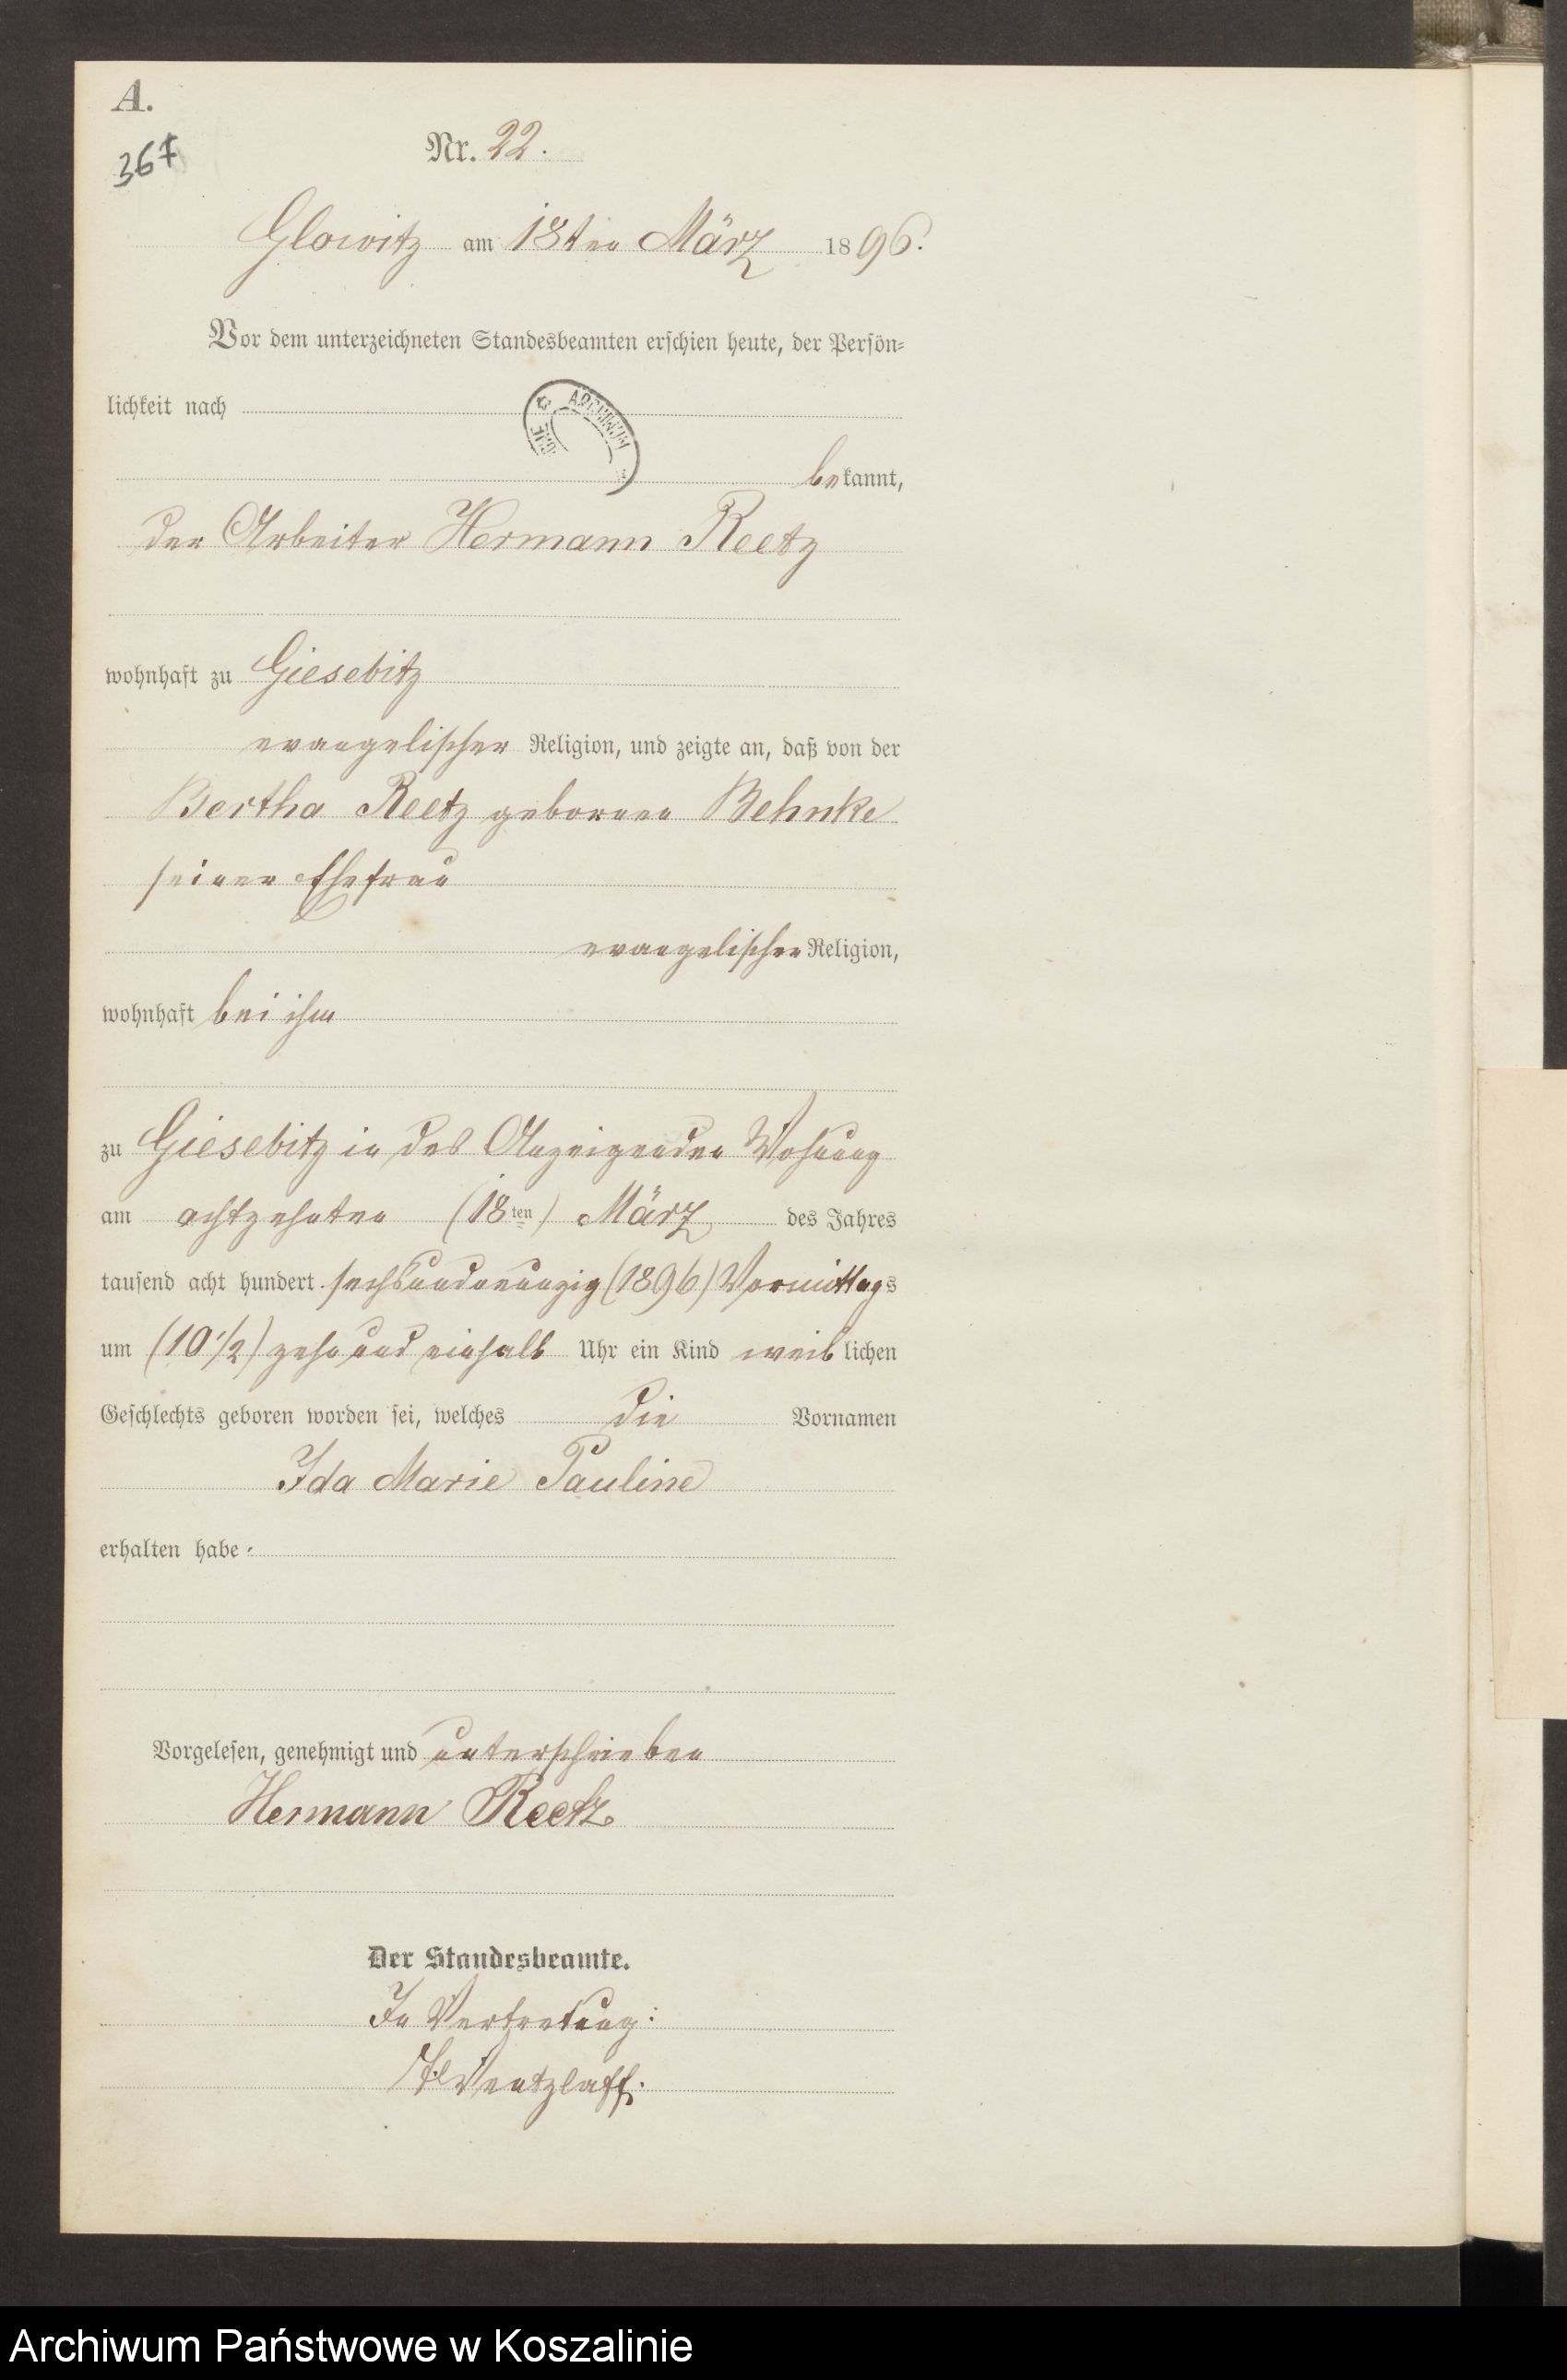 A.
367
Nr. 22.
Glowitz am 18ten März 1896.
Vor dem unterzeichneten Standesbeamten erschien heute, der Persön-
lichkeit nach
ARCHIWUM
bekannt,
der Arbeiter Hermann Reetz
wohnhaft zu Giesebitz
evangelischer Religion, und zeigte an, daß von der
Bertha Reetz geborenen Behnke
seiner Ehefrau
evangelischer Religion,
wohnhaft bei ihm
zu Giesebitz in des Anzeigenden Wohnung
am achtzehnten (18ten) März des Jahres
tausend acht hundert sechsundneunzig (1896) Vormittags
um (10 1/2) zehn und einhalb Uhr ein Kind weiblichen
Geschlechts geboren worden sei, welches die Vornamen
Ida Marie Pauline
erhalten habe.
Vorgelesen, genehmigt und unterschrieben
Hermann Reetz
Der Standesbeamte.
In Vertretung:
Wentzlaff.
Archiwum Państwowe w Koszalinie